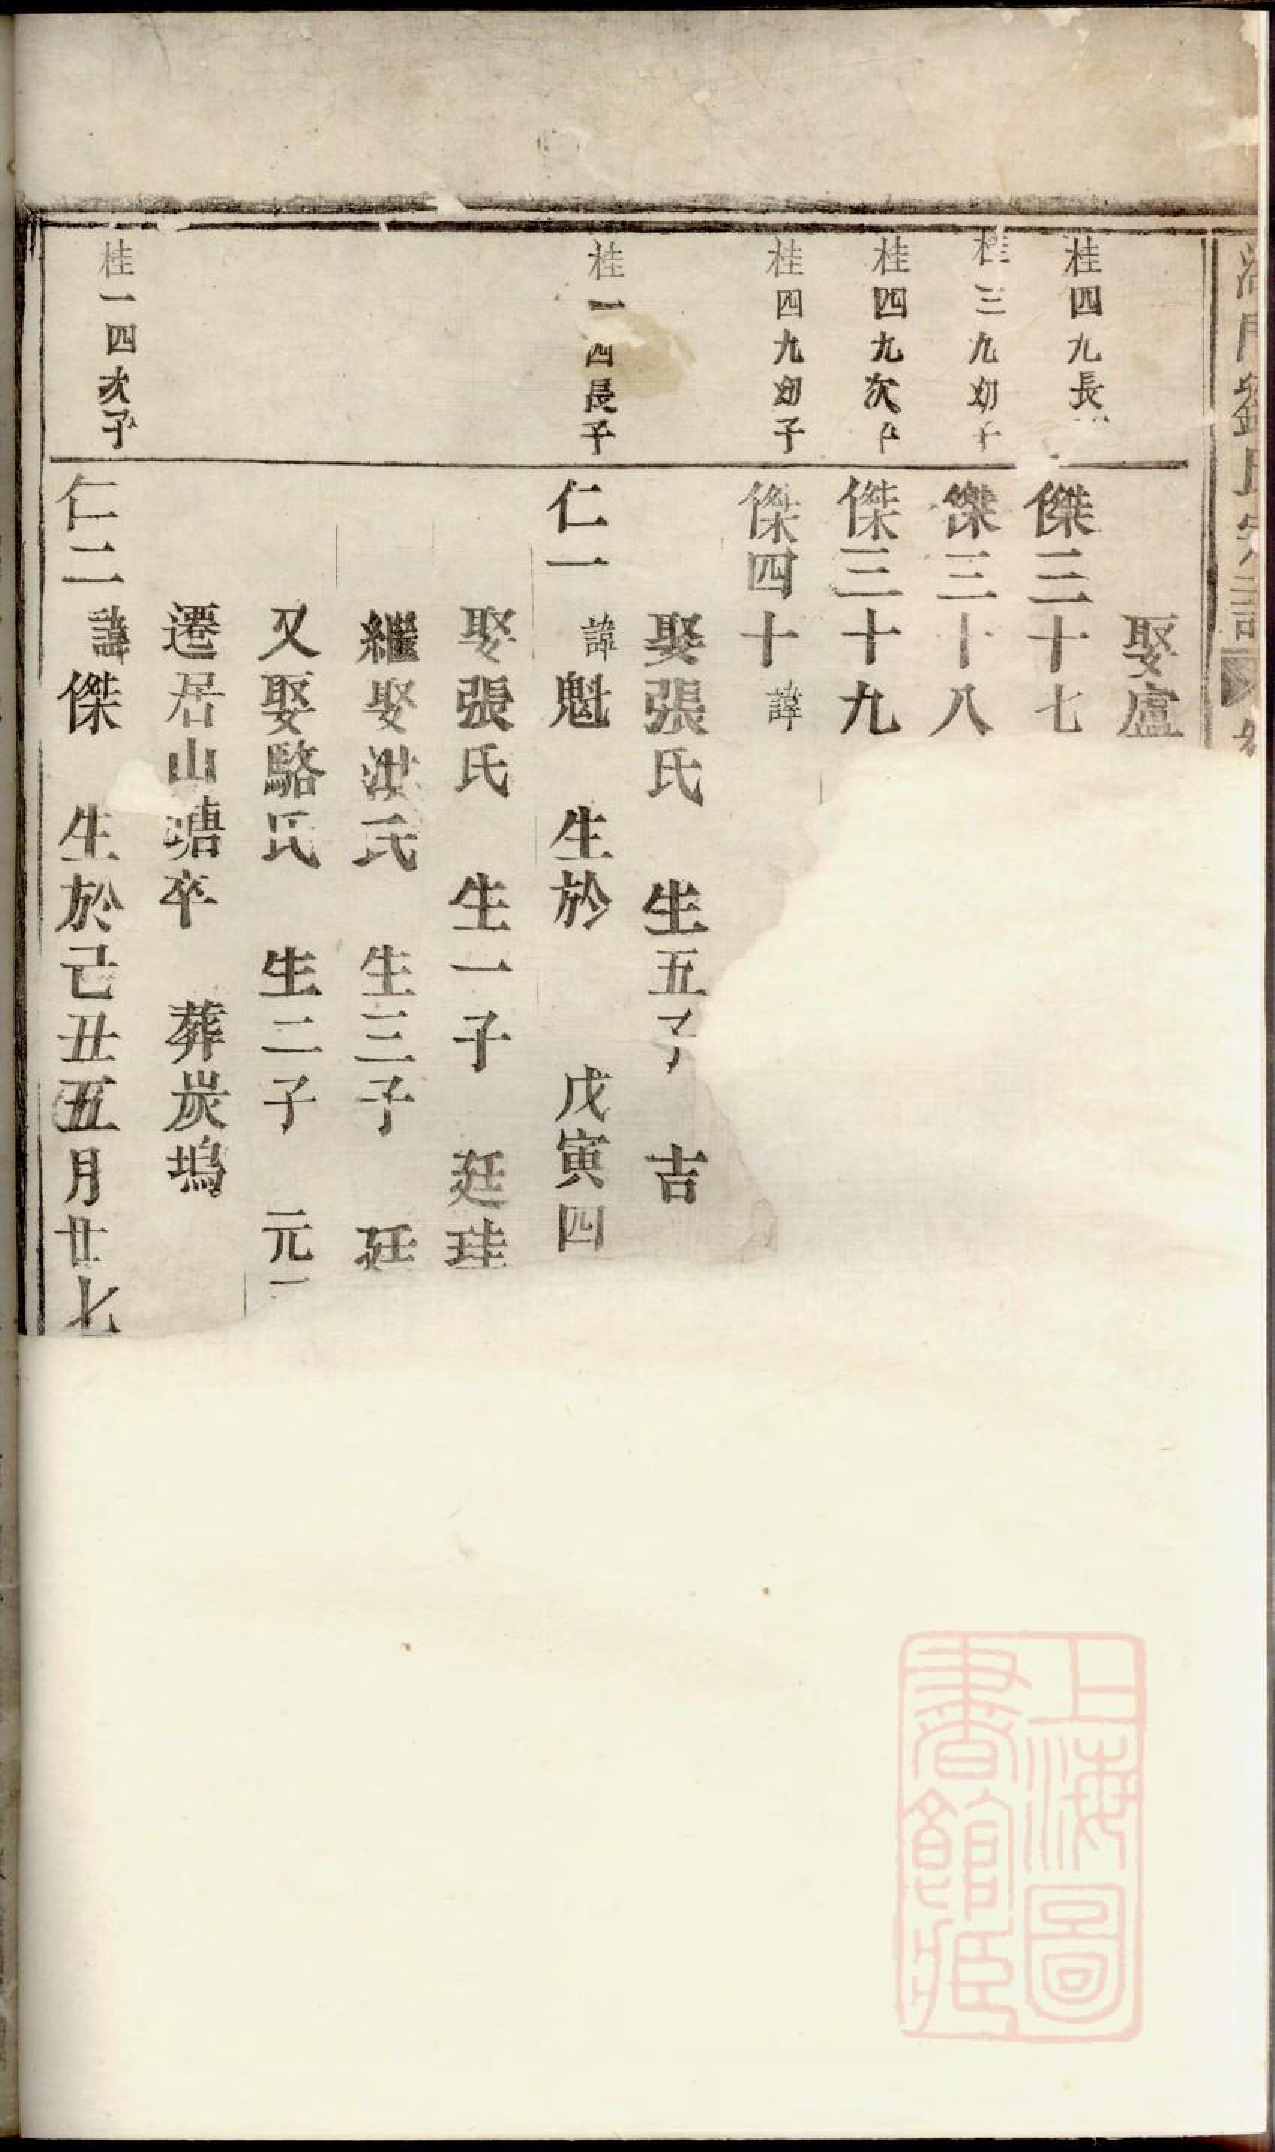 劉氏宗譜
娶盧
桂四九長
傑三十七
桂三九幼子
傑三十八
桂四九次子
傑三十九
桂四九幼子
傑四十諱
娶張氏 生五子 吉
桂一四長子
仁一諱魁 生於 戊寅四
娶張氏 生一子 廷珪
繼娶洪氏 生三子 廷
又娶駱氏 生二子 元
遷居山塘卒 葬炭塢
桂一四次子
仁二諱傑 生於己丑五月廿七
上海圖書館藏